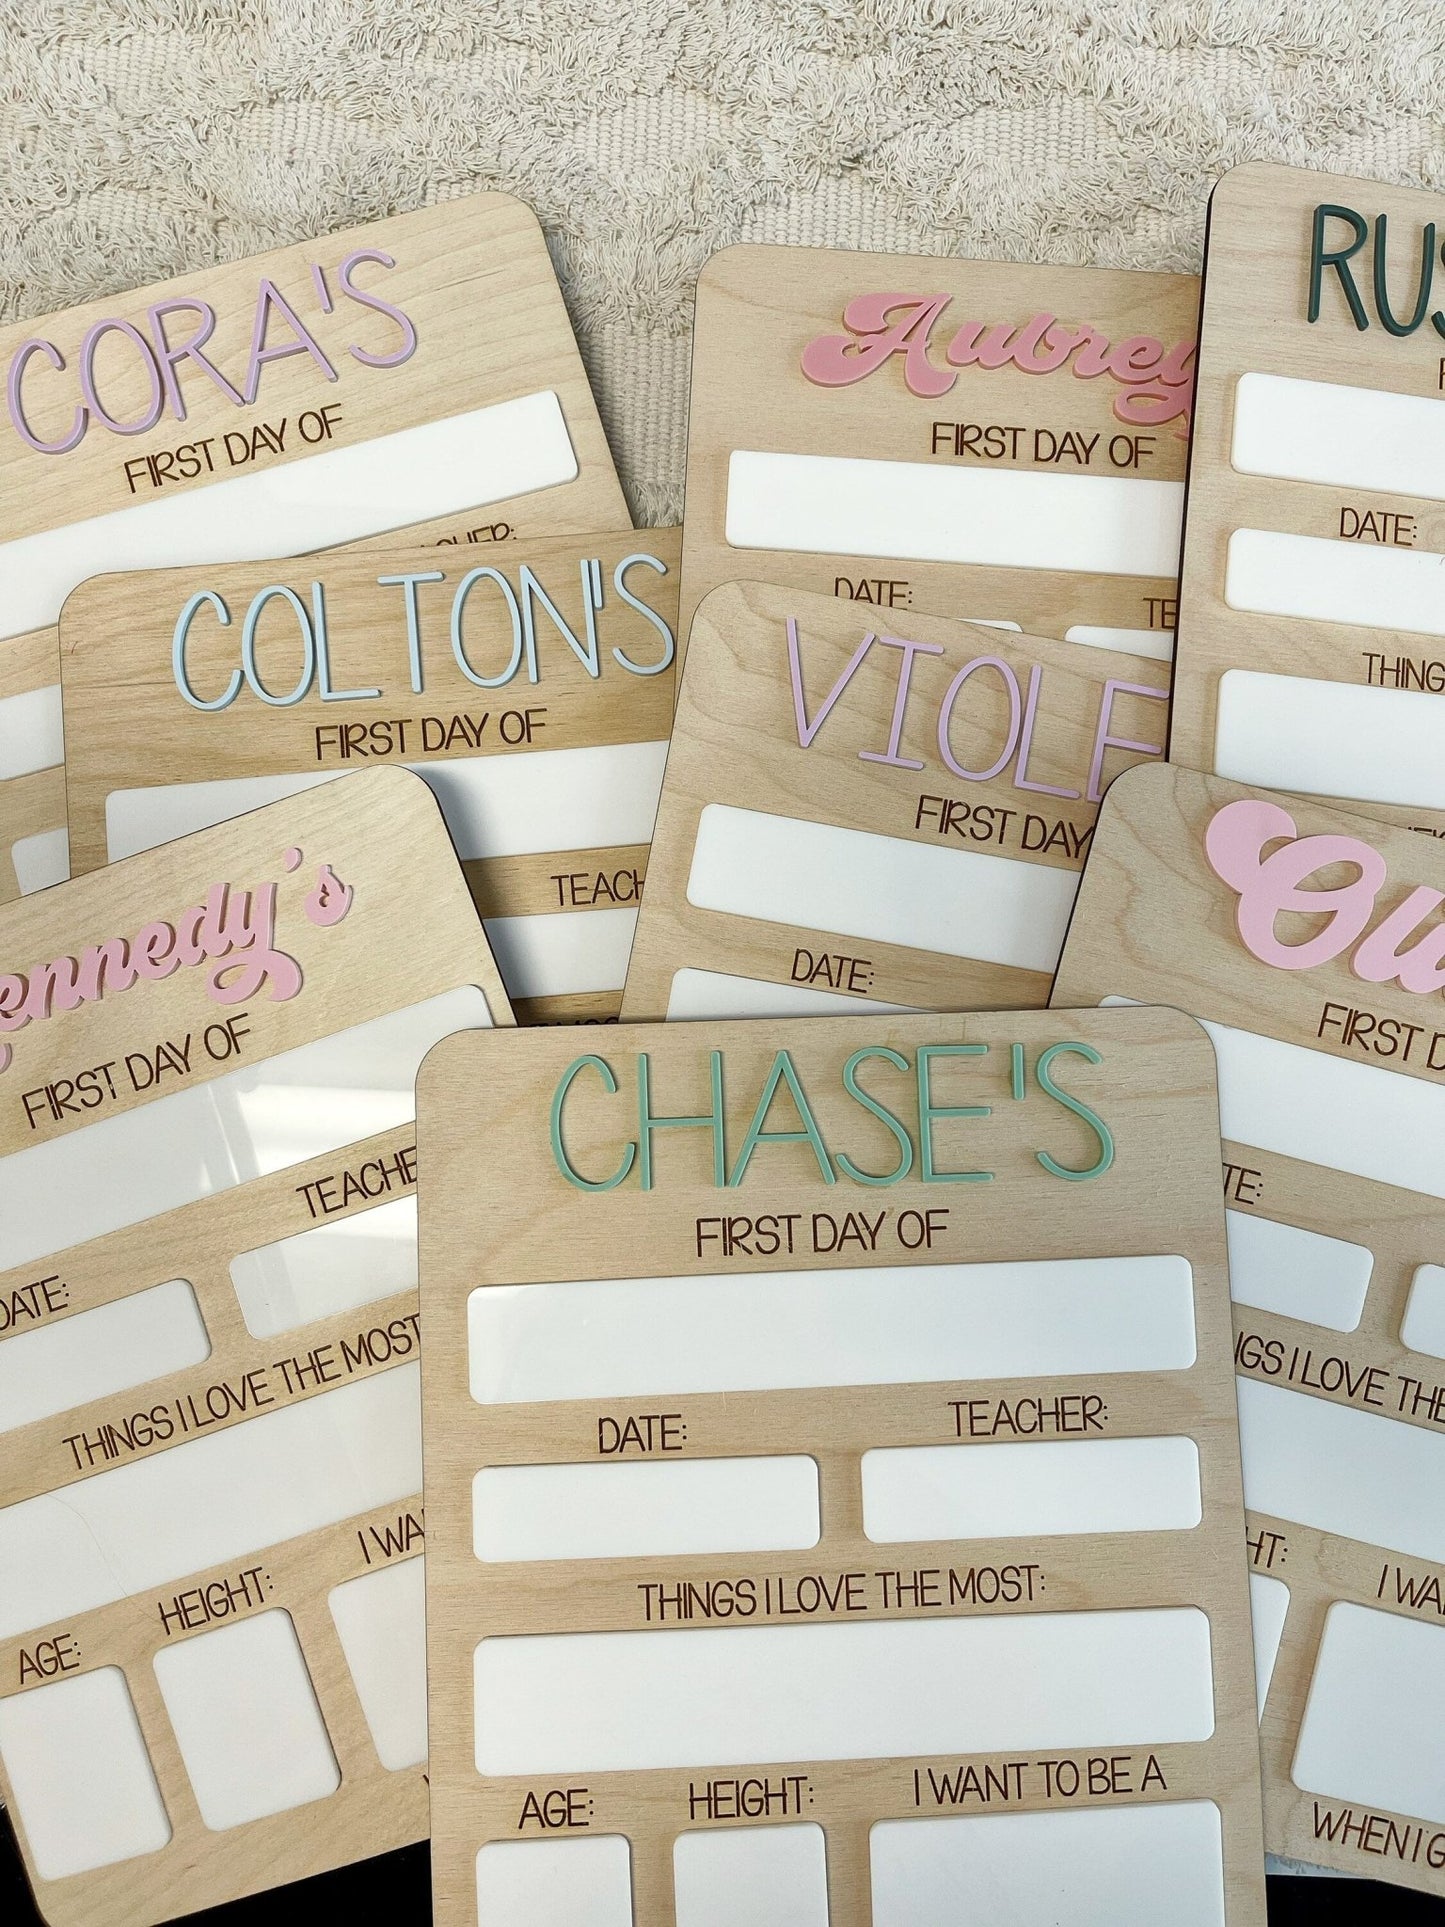 CORA'S
FIRST DAY OF
COLTON'S
FIRST DAY OF
Aubrey
FIRST DAY OF
DATE:
DATE:
VIOLE
FIRST DAY
DATE:
FIRST DAY OF
DATE:
TEACHE
THINGS I LOVE THE MOST
AGE:
HEIGHT:
I WA
FIRST D
I LOVE THE
I WA
WHEN I G
CHASE'S
FIRST DAY OF
DATE:
TEACHER:
THINGS I LOVE THE MOST:
AGE:
HEIGHT:
I WANT TO BE A